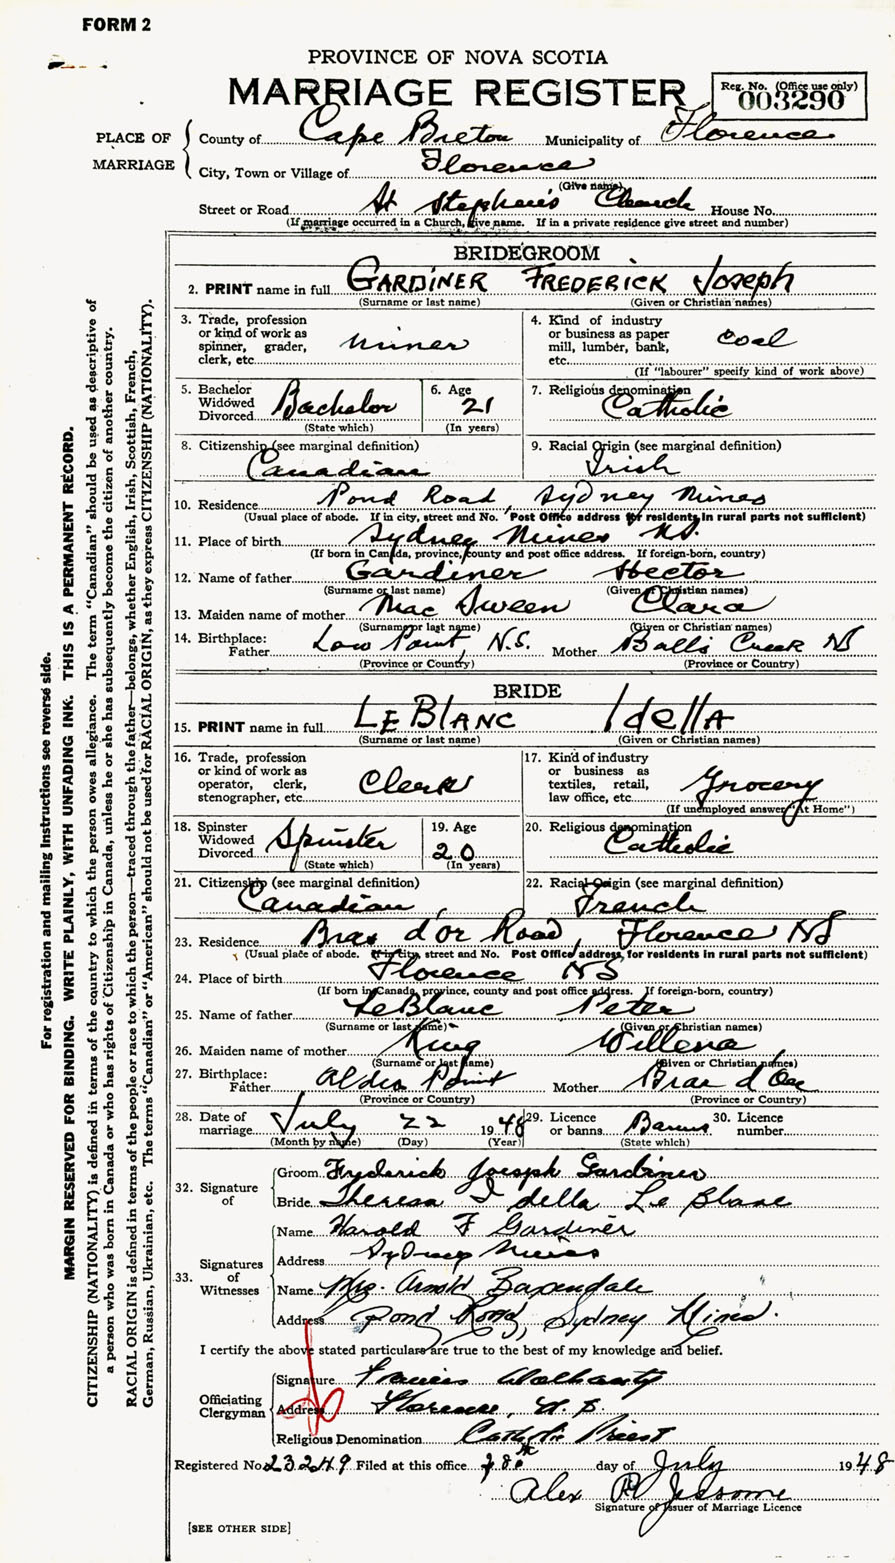 FORM 2
PROVINCE OF NOVA SCOTIA
MARRIAGE REGISTER
Reg. No. (Office use only)
003290
PLACE OF MARRIAGE
County of Cape Breton Municipality of Florence
City, Town or Village of Florence
(Give name)
Street or Road St Stephen's Church House No.
(If marriage occurred in a Church, give name. If in a private residence give street and number)
BRIDEGROOM
2. PRINT name in full GARDINER FREDERICK Joseph
(Surname or last name) (Given or Christian names)
3. Trade, profession or kind of work as spinner, grader, clerk, etc. miner
4. Kind of industry or business as paper mill, lumber, bank, etc. coal
(If "labourer" specify kind of work above)
5. Bachelor Widowed Divorced Bachelor
(State which)
6. Age 21
(In years)
7. Religious denomination Catholic
8. Citizenship (see marginal definition) Canadian
9. Racial Origin (see marginal definition) Irish
10. Residence Pond Road, Sydney Mines
(Usual place of abode. If in city, street and No. Post Office address for residents in rural parts not sufficient)
11. Place of birth Sydney Mines N.S.
(If born in Canada, province, county and post office address. If foreign-born, country)
12. Name of father Gardiner Hector
(Surname or last name) (Given of Christian names)
13. Maiden name of mother Mac Sween Clara
(Surname or last name) (Given or Christian names)
14. Birthplace: Father Low Point, N.S. Mother Balls Creek NS
(Province or Country) (Province or Country)
BRIDE
15. PRINT name in full LEBLANC IdellA
(Surname or last name) (Given or Christian names)
16. Trade, profession or kind of work as operator, clerk, stenographer, etc. Clerk
17. Kind of industry or business as textiles, retail, law office, etc. Grocery
(If unemployed answer "At Home")
18. Spinster Widowed Divorced Spinster
(State which)
19. Age 20
(In years)
20. Religious denomination Catholic
21. Citizenship (see marginal definition) Canadian
22. Racial Origin (see marginal definition) French
23. Residence Bras d'or Road, Florence NS
(Usual place of abode. If in city, street and No. Post Office address, for residents in rural parts not sufficient)
24. Place of birth Florence NS
(If born in Canada, province, county and post office address. If foreign-born, country)
25. Name of father LeBlanc Peter
(Surname or last name) (Given or Christian names)
26. Maiden name of mother King Willena
(Surname or last name) (Given or Christian names)
27. Birthplace: Father Point Mother Bras d'Or
(Province or Country) (Province or Country)
28. Date of marriage July 22 1948
(Month by name) (Day) (Year)
29. Licence or banns Banns
(State which)
30. Licence number
32. Signature of
Groom Frederick Joseph Gardiner
Bride Theresa Idella Le Blanc
33. Signatures of Witnesses
Name Harold F Gardiner
Address Sydney Mines
Name Mrs. Arnold Baxendale
Address Pond Road, Sydney Mines.
I certify the above stated particulars are true to the best of my knowledge and belief.
Officiating Clergyman
Signature Francis
Address Florence, N.S.
Religious Denomination Catholic Priest
Registered No. 23249 Filed at this office 28th day of July 1948
Alex R Jessome
Signature of Issuer of Marriage Licence
[SEE OTHER SIDE]
For registration and mailing Instructions see reverse side.
MARGIN RESERVED FOR BINDING. WRITE PLAINLY, WITH UNFADING INK. THIS IS A PERMANENT RECORD.
CITIZENSHIP (NATIONALITY) is defined in terms of the country to which the person owes allegiance. The term "Canadian" should be used as descriptive of
a person who was born in Canada or who has rights of Citizenship in Canada, unless he or she has subsequently become the citizen of another country.
RACIAL ORIGIN is defined in terms of the people or race to which the person—traced through the father—belongs, whether English, Irish, Scottish, French,
German, Russian, Ukrainian, etc. The terms "Canadian" or "American" should not be used for RACIAL ORIGIN, as they express CITIZENSHIP (NATIONALITY).